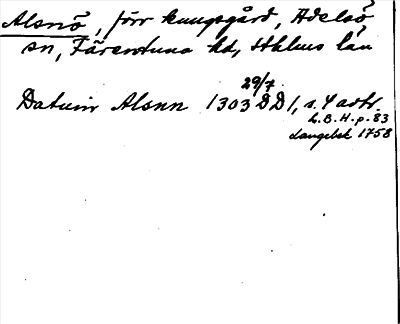 Alsnö, förr kungsgård, Adelsö
sn, Färentuna hd, Sthlms län
29/7
Datum Alsnn 1303 DD1, s. 4 avtr.
L.B.H. p. 83
Langebek 1758